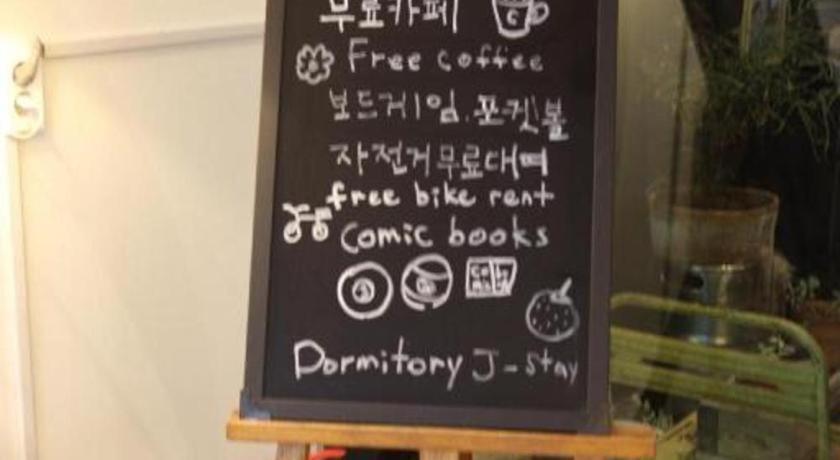 무료카페
Free coffee
보드게임.포켓볼
자전거무료대여
free bike rent
comic books
Dormitory J-stay